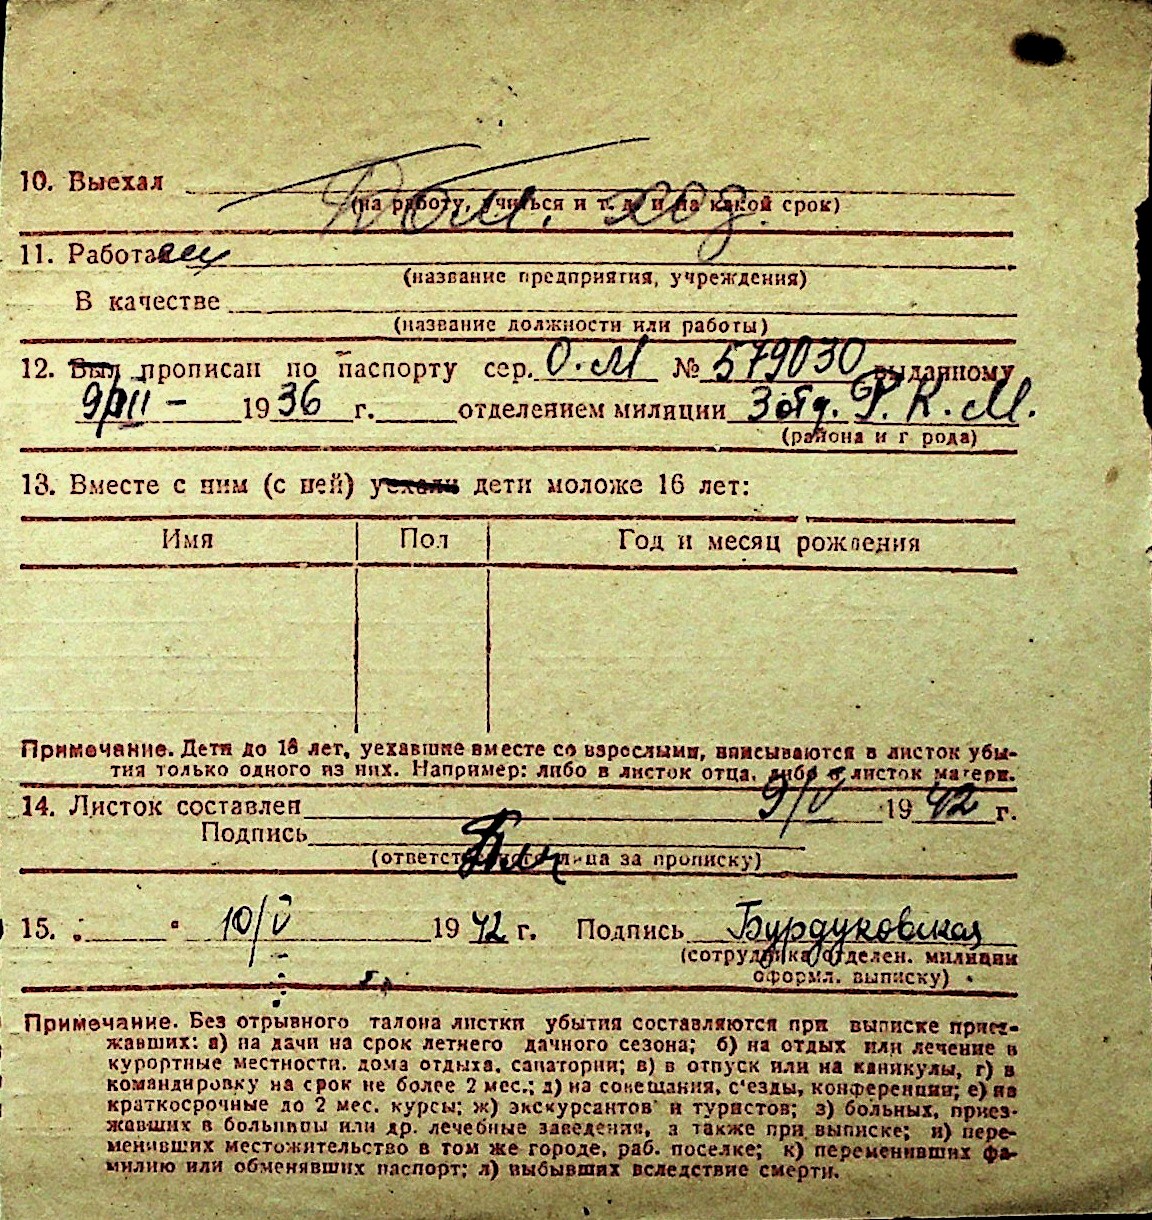 10. Выехал
(на работу, учиться и т. д. и на какой срок)
11. Работа
(название предприятия, учреждения)
В качестве
(название должности или работы)
12. Был прописан по паспорту сер. О.М № 579030 выданному
9/III - 1936 г. отделением милиции 3 отд. Р.К.М.
(района и г рода)
13. Вместе с ним (с ней) уехали дети моложе 16 лет:
Имя Пол Год и месяц рождения
Примечание. Дети до 16 лет, уехавшие вместе со взрослыми, вписываются в листок убы-
тия только одного из них. Например: либо в листок отца, либо в листок матери.
14. Листок составлен 9/V 1942 г.
Подпись
(ответственного лица за прописку)
15. „ “ 10/V 1942 г. Подпись Бурдуковская
(сотрудника отделен. милиции
оформл. выписку)
Примечание. Без отрывного талона листки убытия составляются при выписке приез-
жавших: а) на дачи на срок летнего дачного сезона; б) на отдых или лечение в
курортные местности, дома отдыха, санатории; в) в отпуск или на каникулы, г) в
командировку на срок не более 2 мес.; д) на совещания, с'езды, конференции; е) на
краткосрочные до 2 мес. курсы; ж) экскурсантов и туристов; з) больных, приез-
жавших в больницы или др. лечебные заведения, а также при выписке; и) пере-
менивших местожительство в том же городе, раб. поселке; к) переменивших фа-
милию или обменявших паспорт; л) выбывших вследствие смерти.